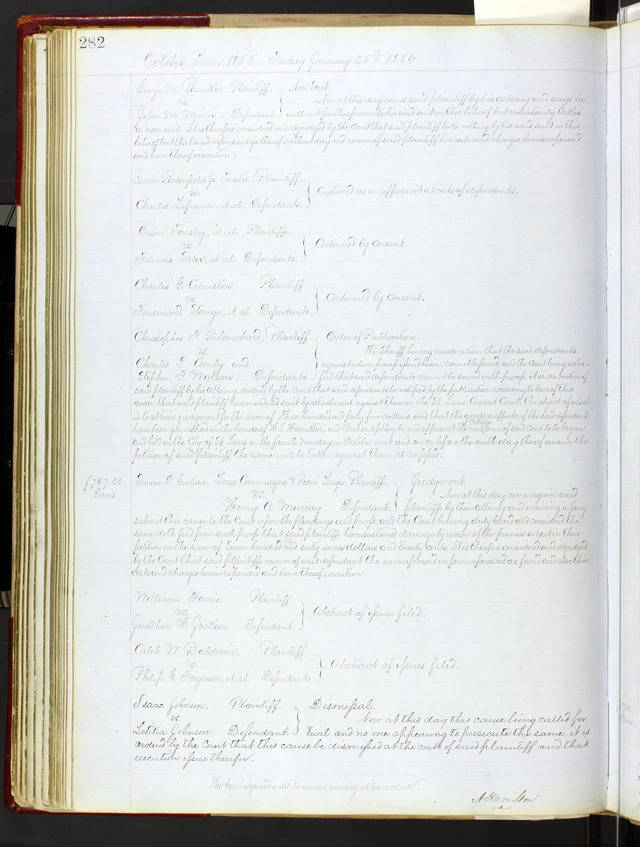 282
October Term 1855. Friday January 25th 1856.
George W. Plaintiff } Non Suit.
vs. Now at this day comes said plaintiff by his attorney and says he
John M. Defendant. will not further prosecute his said suit in this behalf but voluntarily takes
a non suit. It is therefore considered and adjudged by the Court that said plaintiff take nothing by his said suit in this
behalf but that said defendant go thereof without day and recover of said plaintiff his costs and charges herein expended
and have thereof execution.
Isaac Rosenfeld Jr. Trustee, Plaintiff.
vs. } Continued as on affidavit at costs of defendants.
Charles et al. Defendants.
et al. Plaintiffs.
vs. } Continued by consent.
Francis et al. Defendants.
Charles G. Plaintiff
vs. } Continued by consent.
Ferdinand et al. Defendants.
Christopher F. Blanchard, Plaintiff } Order of Publication.
vs. The Sheriff having made return that the said defendants
Charles E. and against whom process issued herein, cannot be found, and the Court being satis-
Stephen F. Defendants. fied that said defendants cannot be summoned in this cause by process, it is on motion of
said plaintiff by his attorney, ordered by the Court that said defendants be notified by the publication according to law of this
order, that said plaintiff has instituted suit by attachment against them in the St. Louis Circuit Court, the object of which
is to obtain judgment for the sum of Four hundred and forty five dollars, and that the effects of the said defendants
have been garnished in the hands of and that unless they be and appear at the next term of said Court to be begun
and held on the City of St. Louis on the fourth Monday in October next and on or before the sixth day thereof answer the
petition of said plaintiff the same will be taken against them as confessed.
$767.20
Dams.
and Plaintiffs. } Judgment.
vs. Now at this day come again said
Henry A. Murray, Defendant. plaintiffs by their attorney and waiving a jury
submit this cause to the Court upon the pleadings and proofs, and the Court having duly heard and considered the
same doth find from such proofs that said plaintiffs have sustained damage by reason of the premises set out in their
petition in the sum of Seven hundred and sixty seven dollars and twenty cents. It is therefore considered and adjudged
by the Court that said plaintiffs recover of said defendant the sum aforesaid in form aforesaid as found and also their
costs and charges herein expended and have thereof execution.
William Plaintiff
vs. } Abstract of issues filed.
Jonathan Jackson Defendant
Caleb W. Baldwin, Plaintiff.
vs. } Abstract of issues filed.
Philip G. Ferguson, et al. Defendants.
Isaac Johnson. Plaintiff } Dismissal.
vs. Now at this day this cause being called for
Letitia Johnson. Defendant. trial and no one appearing to prosecute the same, it is
ordered by the Court that this cause be dismissed at the costs of said plaintiff and that
execution issue therefor.
The Court adjourned until to morrow morning at ten o'clock.
A Hamilton